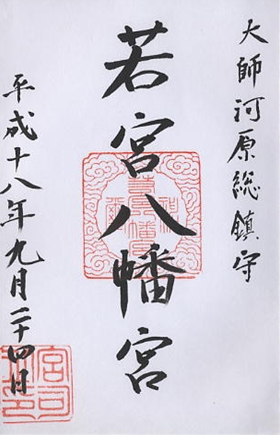 大師河原総鎮守
若宮八幡宮
平成十八年九月二十四日